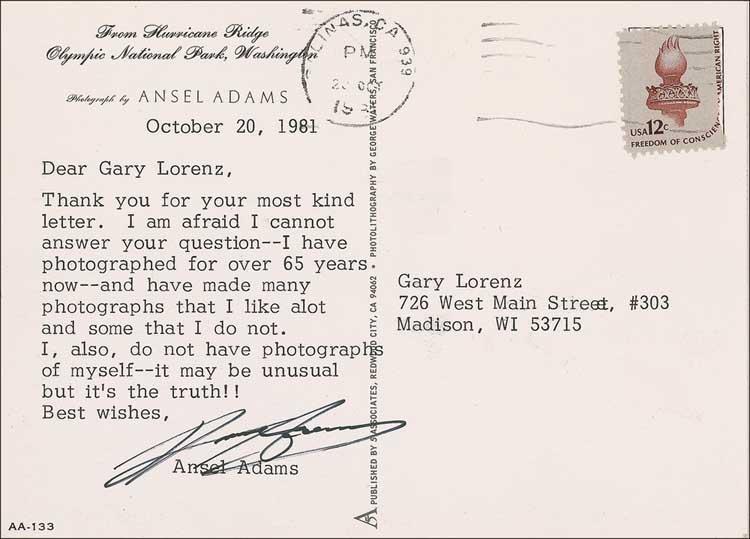 From Hurricane Ridge
Olympic National Park, Washington
Photograph by ANSEL ADAMS
October 20, 1981
Dear Gary Lorenz,
Thank you for your most kind
letter. I am afraid I cannot
answer your question--I have
photographed for over 65 years
now--and have made many
photographs that I like alot
and some that I do not.
I, also, do not have photographs
of myself--it may be unusual
but it's the truth!!
Best wishes,
Ansel Adams
AA-133
PUBLISHED BY 5 ASSOCIATES, REDWOOD CITY, CA 94062 • PHOTOLITHOGRAPHY BY GEORGE WATERS, SAN FRANCISCO
LINAS, CA 939
PM
USA 12c
FREEDOM OF CONSCIEN
AMERICAN RIGHT
Gary Lorenz
726 West Main Street, #303
Madison, WI 53715